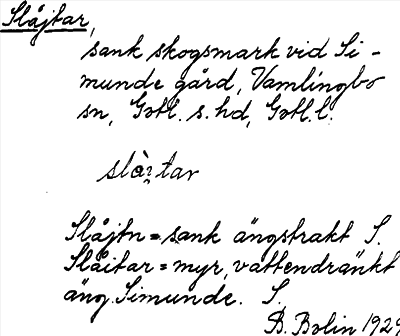 Slåjtar,
sank skogsmark vid Si-
munde gård, Vamlingbo
sn, Gotl. s. hd, Gotl. l.
slå̀i̯tar
Slåjtn = sank ängstrakt S.
Slåitar = myr, vattendränkt
äng. Simunde. S.
B. Bolin 1929